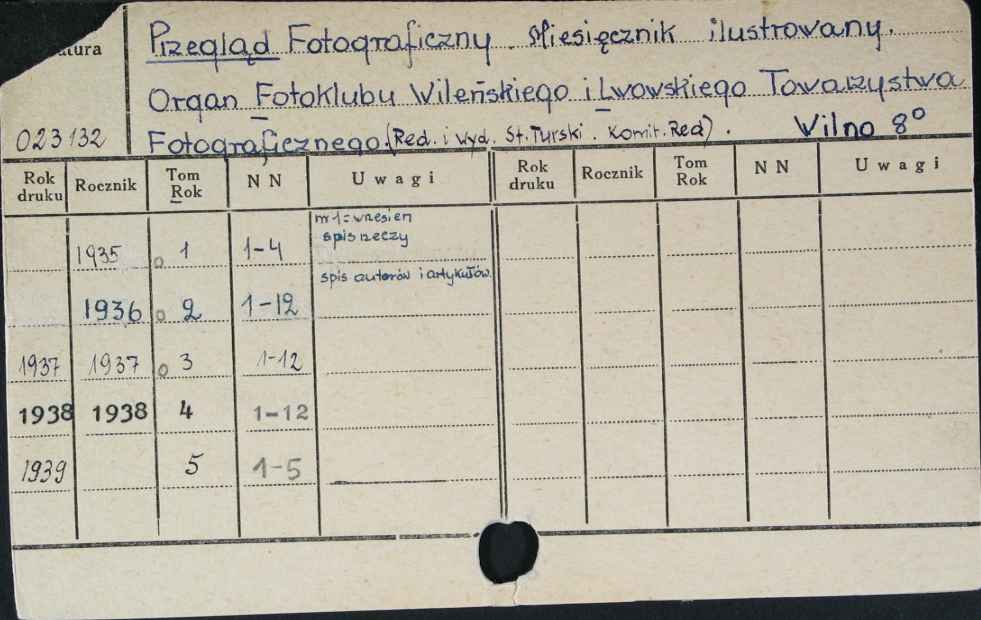 tura
Przegląd Fotograficzny. Miesięcznik ilustrowany.
Organ Fotoklubu Wileńskiego i Lwowskiego Towarzystwa
023132 Fotograficznego. (Red. i wyd. St. Turski. Komit. Red). Wilno 8°
Rok druku Rocznik Tom Rok N N Uwagi Rok druku Rocznik Tom Rok N N Uwagi
nr 1 = wrzesień
spis rzeczy
1935 1 1-4
spis autorów i artykułów
1936 2 1-12
1937 1937 3 1-12
1938 1938 4 1-12
1939 5 1-5